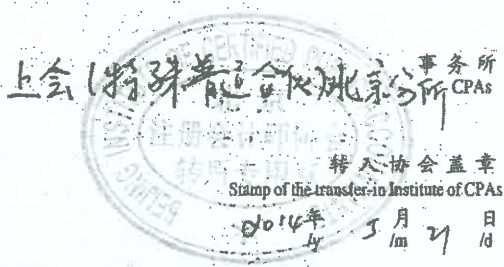 上会(特殊普通合伙)北京分所 事务所
CPAs
注册会计师协会
转所专用章
转入协会盖章
Stamp of the transfer-in Institute of CPAs
2014年 5月 21日
/y /m /d